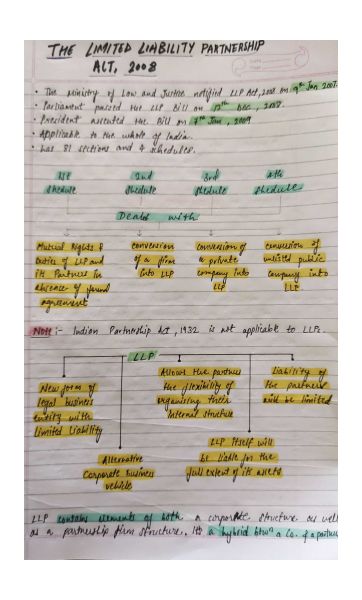 THE LIMITED LIABILITY PARTNERSHIP
ACT, 2008
• The Ministry of Law and Justice notified LLP Act, 2008 on 9th Jan 2009.
• Parliament passed the LLP Bill on 12th Dec, 2008.
• President assented the Bill on 7th Jan, 2009
• Applicable to the whole of India.
• Has 81 sections and 4 schedules.
1st 2nd 3rd 4th
Shedule Shedule Shedule Shedule
Deals with
Mutual Rights & conversion conversion of conversion of
Duties of LLP and of a firm a private unlisted public
its Partners in into LLP company into company into
absence of formal LLP LLP
agreement
Note :- Indian Partnership Act, 1932 is not applicable to LLPs.
LLP
New form of Allows the partners Liability of
legal business the flexibility of the partners
entity with organising their will be limited
limited liability internal structure
Alternative LLP itself will
Corporate business be liable for the
vehicle full extent of its assets
LLP contains elements of both a corporate structure as well
as a partnership firm structure, It's a hybrid btwn a Co. & a partner